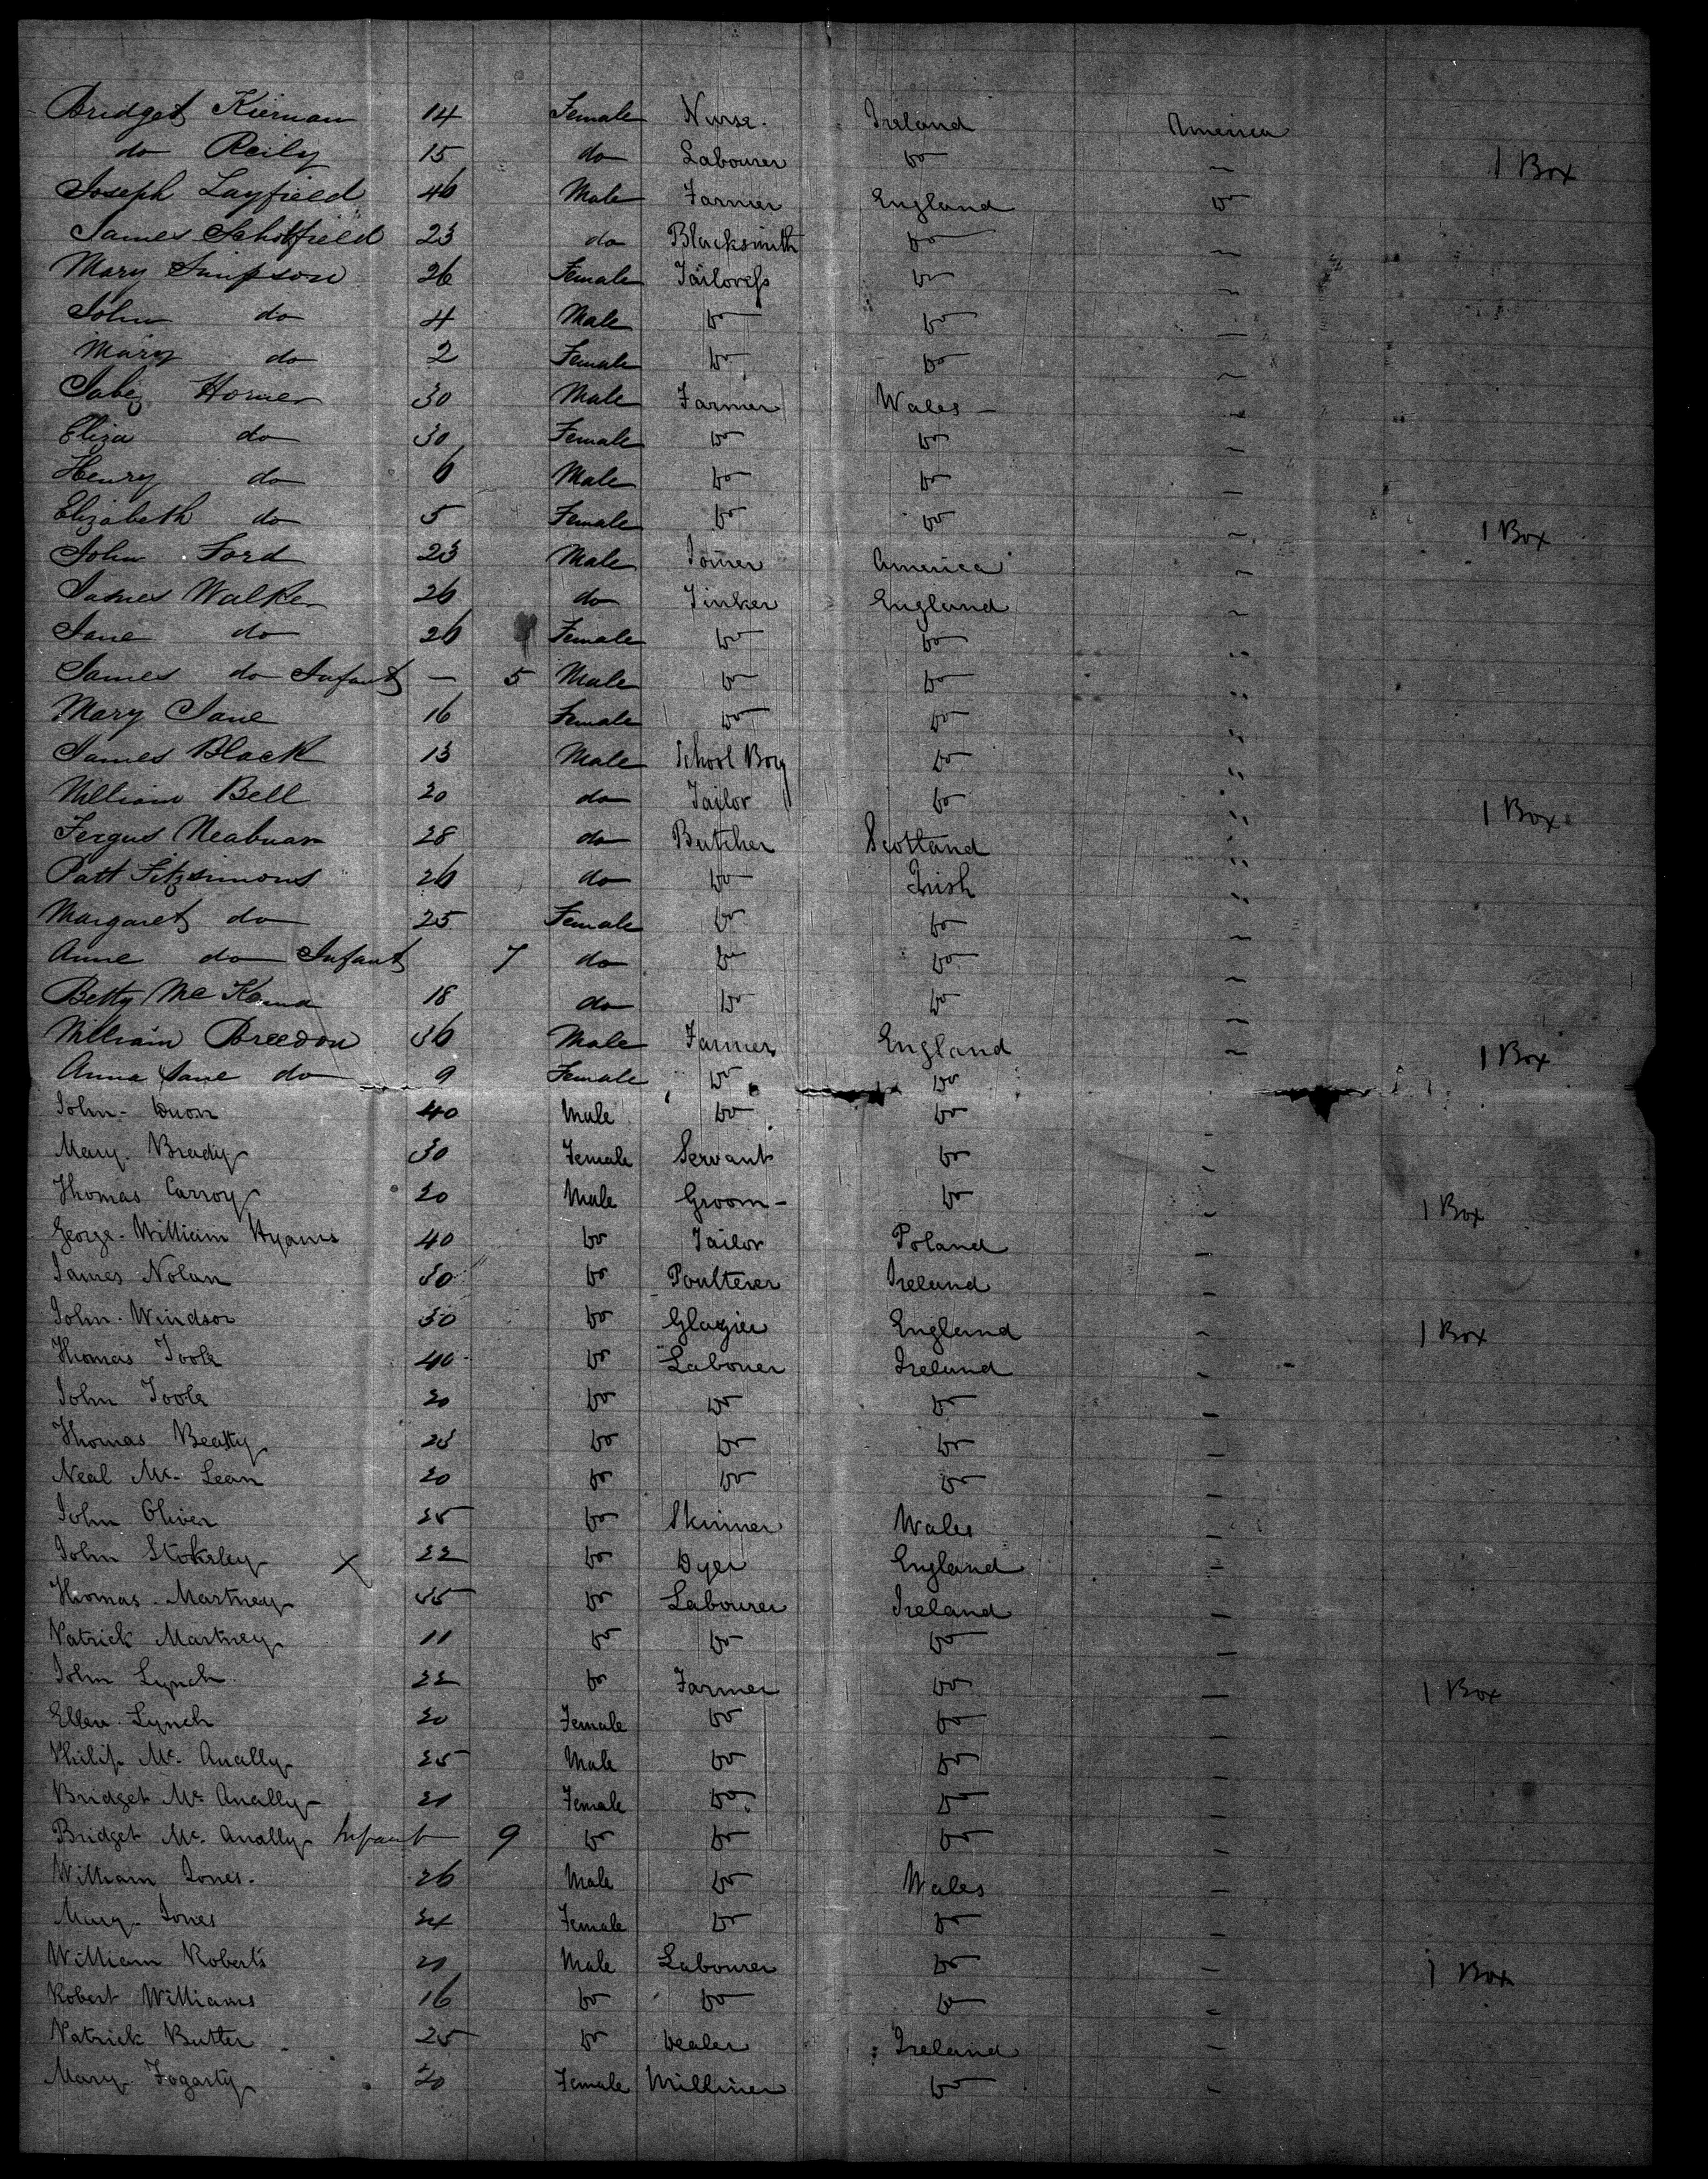 Bridget Kiernan 14 Female Nurse. Ireland America
do Reily 15 do Labourer Do 1 Box
Joseph Layfield 46 Male Farmer England Do
James Scholfield 23 do Blacksmith Do
Mary Simpson 26 Female Tailoress Do
John do 4 Male Do Do
Mary do 2 Female Do Do
Jabez Horner 30 Male Farmer Wales
Eliza do 30 Female Do Do
Henry do 6 Male Do Do
Elizabeth do 5 Female Do Do 1 Box
John Ford 23 Male America
James Walker 26 do Tinker England
Jane do 26 Female Do Do
James do Infant — 5 Male Do Do
Mary Jane 16 Female Do Do
James Black 13 Male School Boy Do
William Bell 20 do Tailor Do 1 Box
Fergus 28 do Butcher Scotland
Patt Fitzsimons 26 do Do Irish
Margaret do 25 Female Do Do
Anne do Infant 7 do Do Do
Betty Mc Kenna 18 do Do Do
William Breedon 36 Male Farmer England 1 Box
Anna Jane do 9 Female Do Do
John 40 Male Do Do
Mary Brady 30 Female Servant Do
Thomas Carroy 20 Male Groom Do 1 Box
George William Hyams 40 Do Tailor Poland
James Nolan 30 Do Poulterer Ireland
John Windsor 30 Do Glazier England 1 Box
Thomas Toole 40 Do Labouer Ireland
John Toole 20 Do Do Do
Thomas Beatty 23 Do Do Do
Neal Mc Lean 20 Do Do Do
John Oliver 25 Do Skinner Wales
John Stoksley X 22 Do Dyer England
Thomas Martney 35 Do Labourer Ireland
Patrick Martney 11 Do Do Do
John Lynch 22 Do Farmer Do 1 Box
Ellen Lynch 20 Female Do Do
Philip Mc Anally 25 Male Do Do
Bridget Mc Anally 21 Female Do Do
Bridget Mc Anally Infant 9 Do Do Do
William Jones 26 Male Do Wales
Mary Jones 24 Female Do Do
William Roberts 21 Male Labourer Do 1 Box
Robert Williams 16 Do Do Do
Patrick Butler 25 Do Dealer Ireland
Mary Fogarty 20 Female Milliner Do